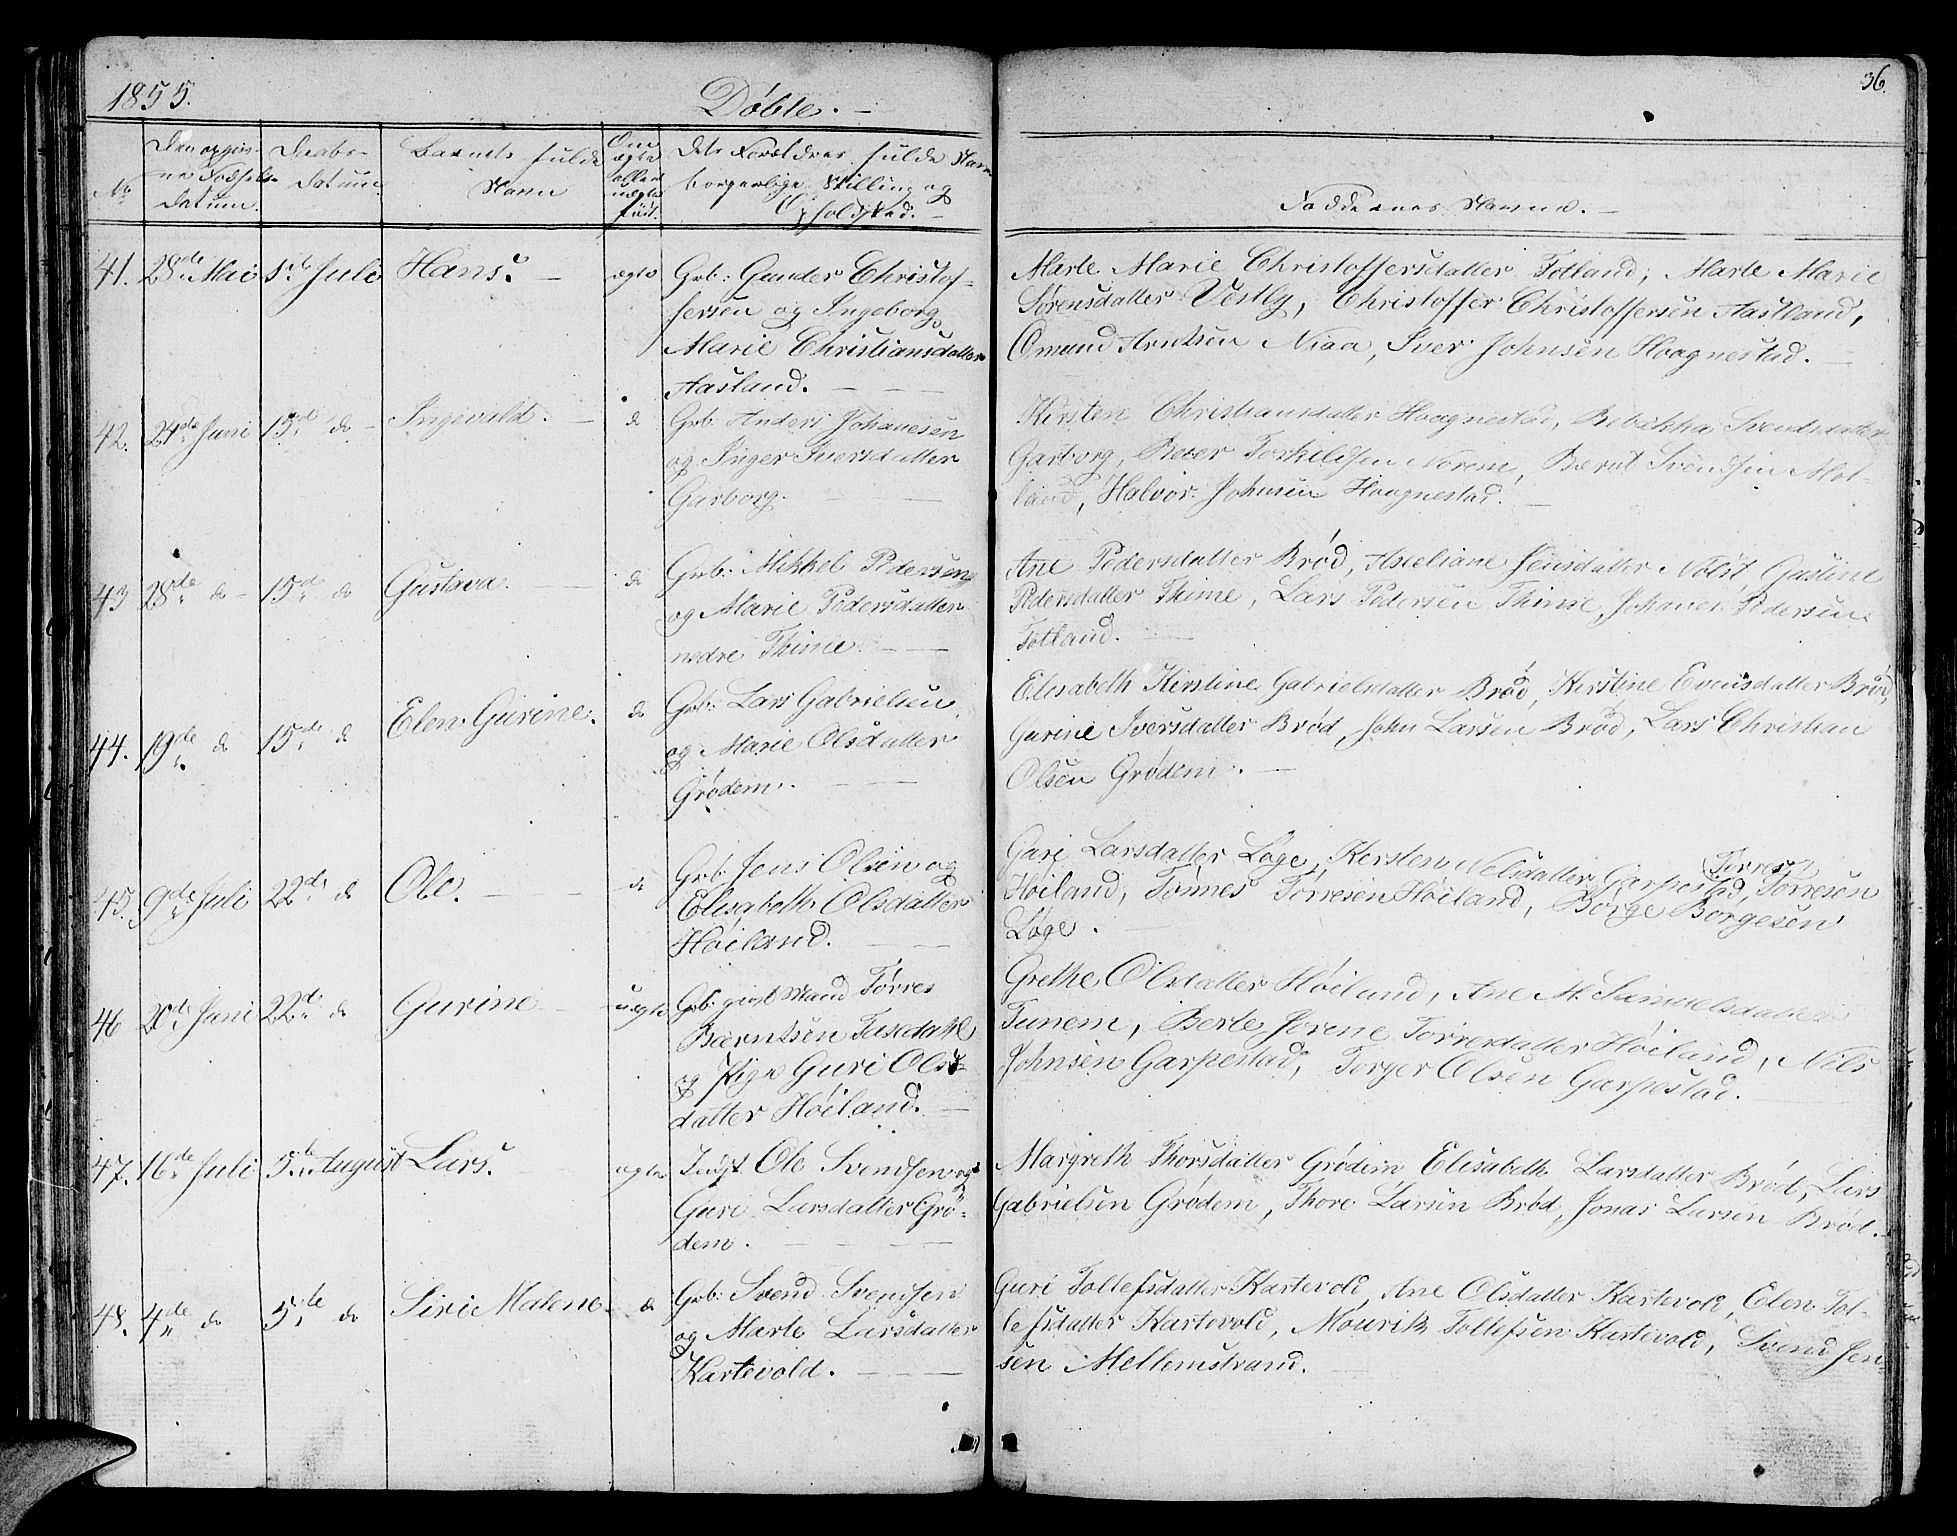 1855.
Döbte. —
36.
No
Den opgiv-
ne Fødsels-
datum.
Daabs-
datum
Barnets fulde
Navn
Om
ægte
eller
uægte
født.
Dets Forældres fulde Navn
borgerlige Stilling og
Opholdsted. —
Faddernes Navne. —
41. 28de Mai 1ste Juli Hans. — ægte Grb: Gunder Christof-
fersen og Ingeborg
Marie Christiansdatter
Aasland. — —
Marte Marie Christoffersdatter Totland, Marte Marie
Sørensdatter Vestly, Christoffer Christoffersen Aastland,
Omund Arntsen Niaa, Iver Johnsen Haagnestad. —
42. 24de Juni 15de do — Ingevald. — do Grb. Anders Johanesen
og Inger Iversdatter
Garborg. — —
Kirsten Christiansdatter Haagnestad, Rebekka Svendsdatter
Garborg, Peter Torkildsen Norem, Bernt Svendsen Mot-
land, Halvor Johnsen Haagnestad. —
43 28de do — 15de do Gustava. — do Grb: Mikkel Pedersen
og Marie Pedersdatter
nedre Thime — —
Ane Pedersdatter Brød, Axeliane Jensdatter Gustine
Pedersdatter Thime, Lars Pedersen Thime, Johanes Pedersen
Totland. —
44. 19de do 15de do Elen Gurine. do Grb: Lars Gabrielsen
og Marie Olsdatter
Grødem. — —
Elisabeth Kirstine Gabrielsdatter Brød, Kirstine Evensdatter Brød,
Gurine Iversdatter Brød, John Larsen Brød, Lars Christian
Olsen Grødem. —
45. 9de Juli 22de do Ole. — — do Grb: Jens Olsen og
Elisabeth Olsdatter
Høiland. — —
Guri Larsdatter Løge, Kersten Nelsdatter Garpestad, Torres Torresen
Høiland, Tønnes Tørresen Høiland, Børge Børgesen
Løge. —
46 20de Juni 22de do Gurine — uægte Grb: givt Mand Tørres
Berntsen Taxedahl
og Pige Guri Ols-
datter Høiland. —
Grethe Olsdatter Høiland, Ane M. Samuelsdatter
Tunem, Berte Serene Torresdatter Høiland, Nils
Johnsen Garpestad, Torger Olsen Garpestad. —
47. 16de Juli 5te August Lars. — ægte Indst. Ole Svendsen og
Guri Larsdatter Grø-
dem. — — —
Margreth Thorsdatter Grødem Elisabeth Larsdatter Brød, Lars
Gabrielsen Grødem, Thore Larsen Brød, Jonas Larsen Brød.
48. 4de do 5te do Siri Malene. do Grb: Svend Svendsen
og Marte Larsdatter
Kartevold. — — —
Guri Tollefsdatter Kartevold, Ane Olsdatter Kartevold, Elen Tol-
lefsdatter Kartevold, Mourik Tollefsen Kartevold, Svend Jen-
sen Mellemstrand. —